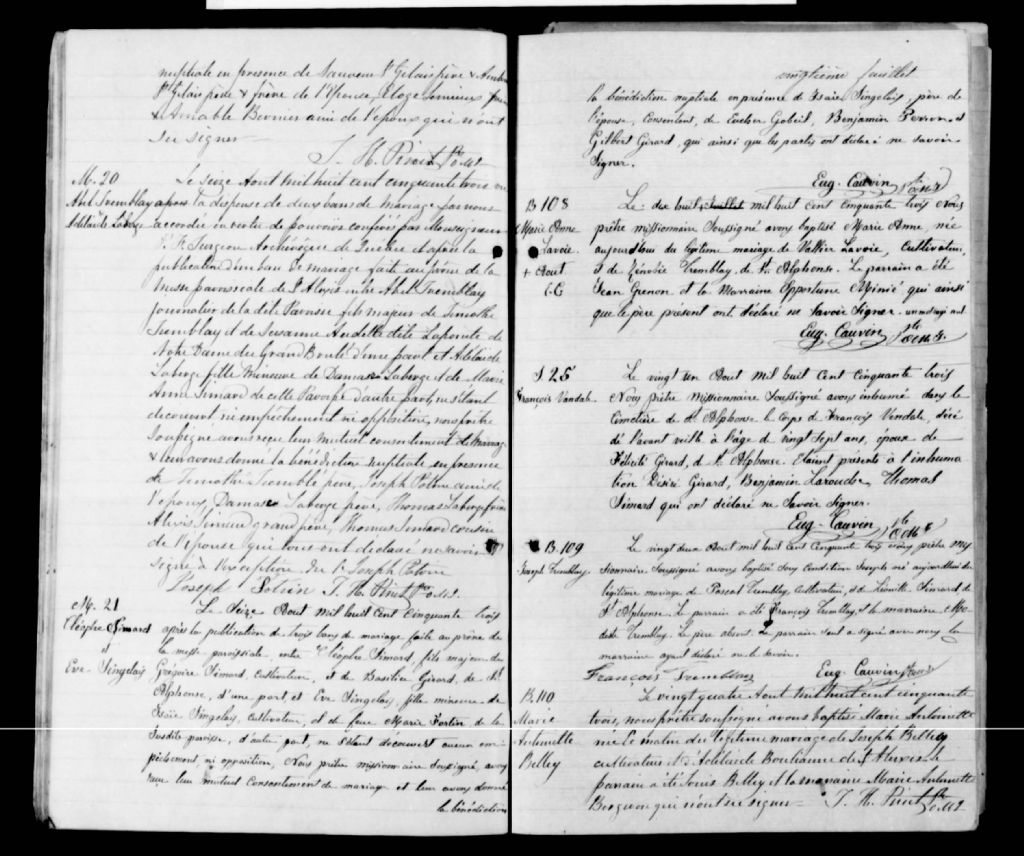 nuptiale en presence de Sauveur St Gelais père &
St Gelais père & frère de l'Epouse, Eloge Lemieux
& Amable Bernier ami de l'epoux qui n'ont
su signer
J. H. Pinet Ptre
M. 20
Abel Tremblay
Adélaïde Laberge
Le seize Aout mil huit cent cinquante trois
après la dispense de deux bans de mariage par nous
accordée en vertu de pouvoirs confiés par Monseigneur
P. F. Turgeon Archevêque de Québec et après la
publication d'un ban de mariage faite au prône de la
messe paroissiale de St Alexis entre Abel Tremblay
journalier de la dite Paroisse fils majeur de Timothé
Tremblay et de Susanne Andette dite Lapointe de
Notre Dame du Grand Brulé d'une part et Adélaide
Laberge fille mineure de Damase Laberge et de Marie
Anne Simard de cette Paroisse d'autre part, ne s'étant
decouvert ni empêchement ni opposition, nous prêtre
soussigné avons reçu leur mutuel consentement de mariage
& leur avons donné la bénédiction nuptiale en presence
de Timothé Tremblé père, Joseph Potvin ami de
l'epoux, Damase Laberge père, Thomas Laberge frère
Alexis Simard grand père, Thomas Simard cousin
de l'épouse qui tous ont déclaré ne savoir
signer à l'exception de Joseph Potvin
Joseph Potvin J. H. Pinet Ptre
M. 21
Cléophe Simard
et
Eve Singelais
Le Seize Aout mil huit Cent Cinquante trois
après la publication de trois bans de mariage faite au prône de
la messe paroissiale, entre Cléophe Simard, fils majeur de
Grégoire Simard, cultivateur, et de Basilice Girard, de St
Alphonse, d'une part et Eve Singelais, fille mineure de
Isaïe Singelais, cultivateur, et de feue Marie Fortin de la
susdite paroisse, d'autre part, ne s'étant découvert aucun em
pêchement ni opposition, Nous prêtre missionnaire soussigné, avons
reçu leur mutuel Consentement de mariage et leur avons donné
la bénédiction
vingtième feuillet
la bénédiction nuptiale en présence de Isaïe Singelais, père de
l'épouse, Consentant, de Eucher Gobeil, Benjamin Perron et
Gilbert Girard, qui ainsi que les parties ont déclaré ne savoir
Signer.
Eug. Cauvin Ptre o.m.i
B 108
Marie Anne
Lavoie.
+ Aout
E.C
Le dix huit + Juillet mil huit Cent Cinquante trois Nous
prêtre missionnaire Soussigné avons baptisé Marie Anne, née
aujourdhui du légitime mariage de Vallier Lavoie, Cultivateur,
et de Zénobie Tremblay, de St. Alphonse. Le parrain a été
Jean Grenon et la Marraine Opportune Minié qui ainsi
que le père présent ont déclaré ne Savoir Signer. un mot rayé nul
Eug. Cauvin Ptre o.m.i.
S. 25
François Vandale.
Le vingt un Aout mil huit Cent Cinquante trois
Nous prêtre Missionnaire Soussigné avons inhumé dans le
Cimetière de St Alphonse le Corps de François Vandale, décé
dé l'avant veille à l'age de vingt sept ans, époux de
Félicité Girard, de St. Alphonse. Etaient présents à l'inhuma
tion Désiré Girard, Benjamin Larouche, Thomas
Simard qui ont déclaré ne Savoir Signer.
Eug. Cauvin Ptre o.m.i
B. 109
Joseph Tremblay
Le vingt deux Aout mil huit Cent Cinquante trois Nous prêtre Mis
sionnaire Soussigné avons baptisé Sous Condition Joseph né aujourdhui du
légitime mariage de Pascal Tremblay, Cultivateur, et de Léonille Simard de
St Alphonse. Le parrain a été François Tremblay, et la marraine Mo
deste Tremblay. Le père absent. Le parrain seul a signé avec nous la
marraine ayant déclaré ne le Savoir.
Francois Tremblay Eug. Cauvin Ptre o.m.i
B. 110
Marie
Antoinette
Belley
Le vingt quatre Aout mil huit cent cinquante
trois, nous prêtre soussigné avons baptisé Marie Antoinette
née le matin du légitime mariage de Joseph Belley
cultivateur et d'Adélaïde Boulianne de St Alexis. le
parrain a été Louis Belley et la marraine Marie Antoinette
Bergeron qui n'ont su signer J. H. Pinet Ptre